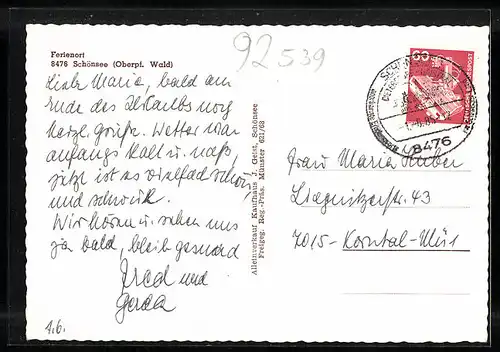 Ferienort
8476 Schönsee (Oberpf. Wald)
92539
Liebe Maria, bald am
Ende des Urlaubs noch
herzl. Grüße. Wetter war
anfangs kalt u. naß,
jetzt ist es
und
Wir hören u. sehen uns
ja bald, bleib gesund
Fred und
Gerda
1.6.
Alleinverkauf Kaufhaus J. Geist, Schönsee
Freigeg. Reg.-Präs. Münster 621/68
60
DEUTSCHE BUNDESPOST
8476
Frau Maria Huber
Liegnitzerstr. 43
7015 - Korntal-Mü1